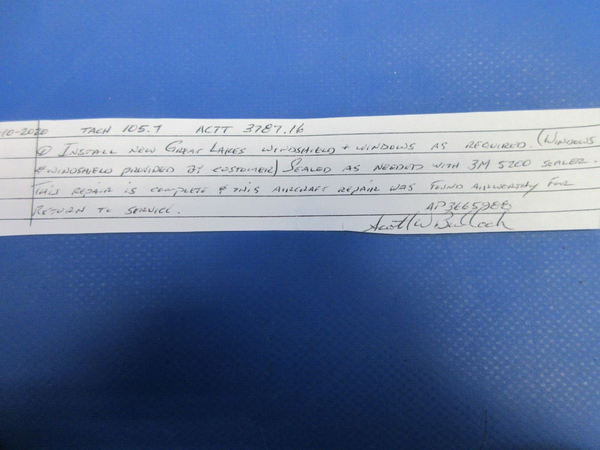 -10-2020 TACH 105.7 ACTT 3787.16
① INSTALL NEW GREAT LAKES WINDSHIELD + WINDOWS AS REQUIRED. (WINDOWS
& WINDSHIELD PROVIDED BY CUSTOMER) SEALED AS NEEDED WITH 3M 5200 SEALER.
THIS REPAIR IS COMPLETE & THIS AIRCRAFT REPAIR WAS FOUND AIRWORTHY FOR
RETURN TO SERVICE.
AP3665988
Scott W Bulloch